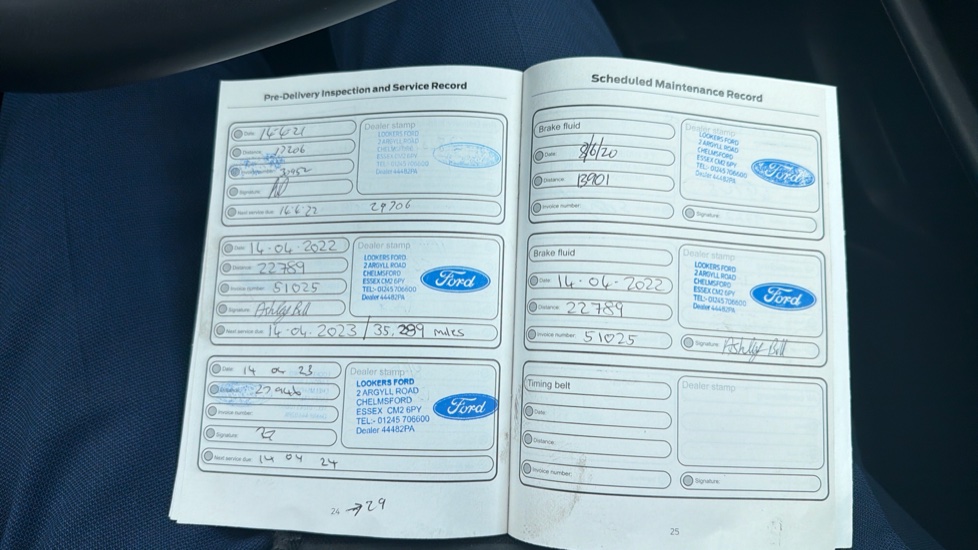 Pre-Delivery Inspection and Service Record
Date: 14.6.21
Distance: 17206
Signature:
Next service due: 14.6.22 29706
Dealer stamp
LOOKERS FORD
2 ARGYLL ROAD
CHELMSFORD
ESSEX CM2 6PY
TEL:- 01245 706600
Dealer 44482PA
Date: 14.04.2022
Distance: 22789
Invoice number: 51025
Signature: Ashley Bill
Next service due: 14.04.2023 / 35,289 miles
Dealer stamp
LOOKERS FORD
2 ARGYLL ROAD
CHELMSFORD
ESSEX CM2 6PY
TEL:- 01245 706600
Dealer 44482PA
Ford
Date: 14 04 23
Distance: 27946
Invoice number:
Signature:
Next service due: 14 04 24
Dealer stamp
LOOKERS FORD
2 ARGYLL ROAD
CHELMSFORD
ESSEX CM2 6PY
TEL:- 01245 706600
Dealer 44482PA
Ford
24 → 29
Scheduled Maintenance Record
Brake fluid
Date: 8/6/20
Distance: 13901
Invoice number:
Dealer stamp
LOOKERS FORD
2 ARGYLL ROAD
CHELMSFORD
ESSEX CM2 6PY
TEL:- 01245 706600
Dealer 44482PA
Ford
Signature:
Brake fluid
Date: 14.04.2022
Distance: 22789
Invoice number: 51025
Dealer stamp
LOOKERS FORD
2 ARGYLL ROAD
CHELMSFORD
ESSEX CM2 6PY
TEL:- 01245 706600
Dealer 44482PA
Ford
Signature: Ashley Bill
Timing belt
Date:
Distance:
Invoice number:
Dealer stamp
Signature:
25